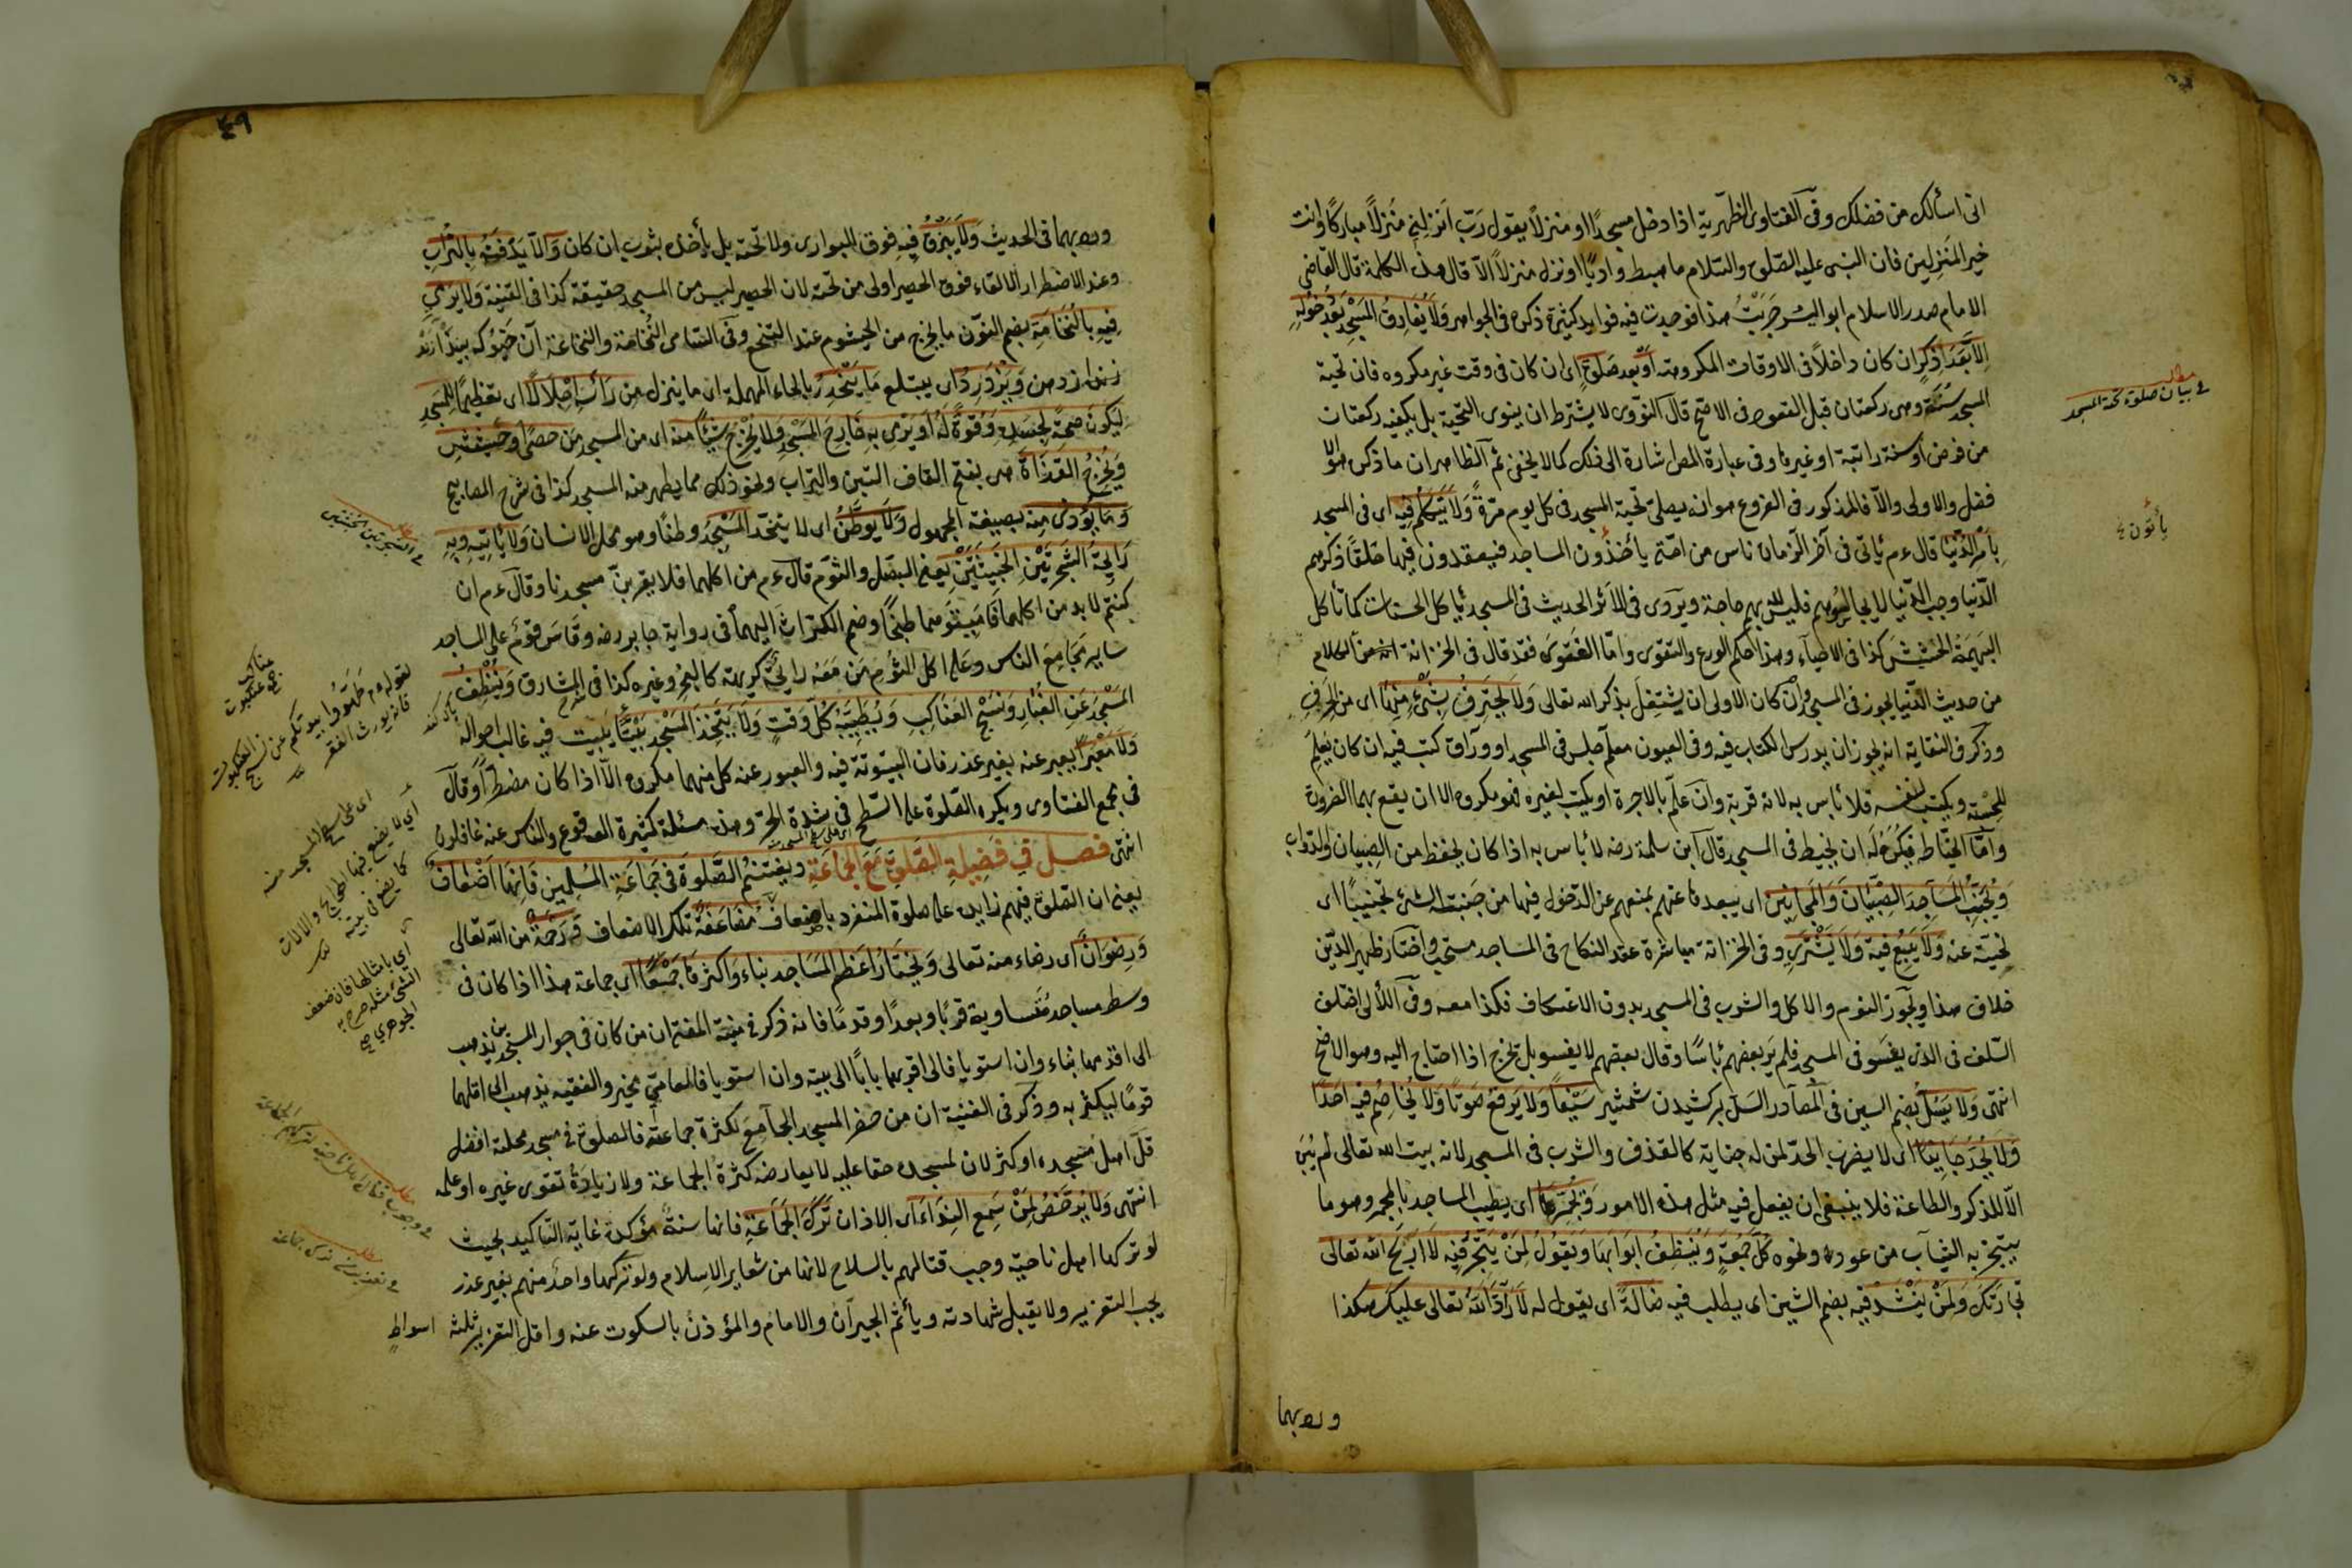 انى اسألك من فضلك وفى الفتاوى الظهرية اذا دخل مسجدًا او منزلًا يقول رَبّ اَنزلنِى مُنزلًا مباركًا وانت
خير المُنزِلين فان النبى عليه الصلوة والسّلام ما هبط واديًا او نزل منزلًا الّا قال هذه الكلمة قال القاضى
الامام صدر الاسلام ابو اليسر جَرّبْتُ هذا فوجدت فيه فوايد كثيرة ذكره فى الجواهر وَلَا يُفَارِقُ المَسْجِدَ بَعْدَ دُخُولِهِ
اِلَّا بَعْدَ ذِكْرٍ ان كان داخلًا فى الاوقات المكروهة اَوْ بَعْدَ صَلٰوةٍ اى ان كان فى وقت غير مكروه فان تحية
المسجد سُنّة وهى ركعتان قبل القعود فى الاصح قال النوّوى لا يشترط ان ينوى التحية بل يكفيه ركعتات
من فرض او سنة راتبة او غيرها وفى عبارة المص اشارة الى ذلك كما لا يخفى ثم الظاهر ان ما ذكر هو الا
فضل والاولى والّا فالمذكور فى الفروع هو انه يصلى تحية المسجد فى كل يوم مرّةً وَلَا يَتَكَلَّمُ فِيهِ اى فى المسجد
بِاَمْرِ الدُّنْيَا قال ءم يأتى فى آخر الزمان ناس من امّتى يأخذون المساجد فيقعدون فيها حلقًا ذكرهم
الدّنيا وحب الدّنيا لا يجالسوهم فليس لله بهم حاجة ويروى فى الاثر الحديث فى المسجد يأكل الحسنات كما تأكل
البهيمة الحشيش كذا فى الاحياء وهذا حكم الورع والتقوى وامّا الفتوى فقد قال فى الخزانة انه من الكلام
من حديث الدّنيا يجوز فى المسجد وان كان الاولى ان يشتغل بذكر الله تعالى وَلَا يَحْتَرِفُ بِشَىْءٍ مِنْهَا اى من الحِرَفِ
وذكر فى النقاية انه يجوز ان يدرس الكتاب فيه وفى العيون معلّم جلس فى المسجد او ورّاق كتب فيه ان كان يُعلِّم
للحِسْبة ويكتب لنفسه فلا بأس به لانه قربة وان علّم بالاجرة او يكتب لغيره فهو مكروه الا ان يقع بهما الضرورة
وامّا الخيّاط فيكره له ان يخيط فى المسجد قال ابن سلمة رضه لا بأس به اذا كان يحفظ من الصبيان والدواب
وَيُجَنِّبُ المَسَاجِدَ الصِّبْيَانَ وَالمَجَانِينَ اى يبعدها عنهم بمنعهم عن الدّخول فيها من جَنبته الشئ تجنيبًا اى
نحيته عنه وَلَا يَبِيعُ فِيهِ وَلَا يَشْتَرِى وفى الخزانة مباشرة عقد النكاح فى المساجد مستحب واختار ظهير الدّين
خلاف هذا ويجوز النوم والاكل والشرب فى المسجد بدون الاعتكاف فكذا معه وفى اللآلى اختلف
السّلف فى الذى يفسو فى المسجد فلم يَر بعضهم بأسًا وقال بعضهم لا يفسو بل يخرج اذا احتاج اليه وهو الاصح
انتهى وَلَا يَسُلُّ بضم السين فى المصادر السَلّ بركشيدن شمشير سَيْفًا وَلَا يَرفَعُ صَوتًا وَلَا يُخَاصِمُ فِيهِ اَحَدًا
وَلَا يُحَدُّ جَانِيًا اى لا يضرب الحدّ لمن له جناية كالقذف والشرب فى المسجد لانه بيت الله تعالى لم يُبْنَ
الّا للذكر والطاعة فلا ينبغى ان يفعل فيه مثل هذه الامور وَيُجَمِّرُهَا اى يطيب المساجد بالمجمر وهو ما
يبتخر به الثياب من عود ونحوه كُلَّ جُمُعَةٍ وَيُنَظِّفُ اَبْوَابَهَا وَيَقُولُ لِمَنْ يَتَّجِرُ فِيهِ لَا اَرْبَحَ اللّٰه تعالى
تِجَارَتَكَ وَلِمَنْ يَنْشُدُ فِيهِ بضم الشين اى يطلب فيه ضَالَّةً اى يقول له لَا رَدَّ اللّٰهُ تعالى عَلَيْكَ هكذا
وردبهما
مطلب
فى بيان صلوة تحية المسجد
يأتون
٤٩
وردبهما فى الحديث وَلَا يَبْزُقُ فيه فوق البوارى ولا تحته بل يأخذه بثوب ان كان وَاِلَّا يَدْفِنُهُ بِالتُّرَابِ
وعند الاضطرار الالقاء فوق الحصير اولى من تحته لان الحصير ليس من المسجد حقيقة كذا فى القنية وَلَا يَرْمِى
فِيهِ بِالنُّخَامَةِ بضم النّون ما يخرج من الخيشوم عند التنخع وفى السّامى النُّخامة والنخاعة آن خيو كه بيندازند
وَيَزْدَرِدُ اى يبتلع مَا يَنْحَدِرُ بالحاء المهملة اى ما ينزل مِنْ رَأْسِهِ اِجْلَالًا اى تعظيمًا لِلمَسْجِدِ
لِيَكُونَ صِحَّةً لِجَسَدِهِ وَقُوَّةً لَهُ اَوْ يَرمِى بِهِ خَارِجَ المَسْجِدِ وَلَا يُخْرِجُ شَيْئًا مِنْهُ اى من المسجد مِنْ حصًى اَو حَشِيشٍ
وَيُخْرِجُ القَذَاةَ هى بفتح القاف التبن والتراب ونحو ذلك مما يطهر منه المسجد كذا فى شرح المصابيح
وَمَا يُؤذى مِنهُ بصيغة المجهول وَلَا يُوطِّنُ اى لا يتخذ المَسْجِدَ وطنًا وهو محل الانسان وَلَا يَأتِيهِ وَبِهِ
رَايِحَةُ الشَّجَرَتَيْنِ الخَبِيثَتَيْنِ يعنى البصل والثوم قال ءم من اكلهما فلا يقربنّ مسجدنا وقال ءم ان
كنتم لا بد من اكلهما فَاَمِيتُوهُما طبخًا وضم الكرّاث اليهما فى رواية جابر رضه وقاس قومٌ على المساجد
سايرَ مَجَامِعَ الناس وعَلى اكل الثوم مَنْ مَعَهُ رايحةٌ كريهة كالبخر وغيره كذا فى المشارق وَيُنَظِّفُ
المَسْجِدَ عَنِ الغُبَارِ وَنَسْجِ العَنَاكِبِ وَيُطَيِّبُهُ كُلَّ وَقْتٍ وَلَا يَتَّخِذُ المَسْجِدَ بَيْتًا يبيت فيه غالب احواله
وَلَا مَعْبَرًا يعبر عنه بغير عذر فان البيتوتة فيه والعبور عنه كل منهما مكروه الّا اذا كان مضطرًا وقال
فى مجمع الفتاوى ويكره الصّلوة على السّطح فى شدة الحرّ وهذه مسئلة كثيرة الوقوع والناس عنه غافلون
انتهى فصل فى فَضِيلةِ الصَّلٰوةِ مَعَ الجَمَاعَةِ ويغتنم الصَّلٰوةَ فِى جَمَاعَةِ المُسْلِمِينَ فَاِنَّهَا اَضْعَافٌ
يعنى ان الصّلوة فيهم زايدة على صلوة المنفرد باضعاف مُضَاعَفَةً تلك الاضعاف وَرَحْمَةٌ من اللّٰه تعالى
وَرِضْوَانٌ اى رضاء منه تعالى وَيَختَارُ اَعْظَمَ المَسَاجِدِ بِنَاءً وَاَكثَرَهَا جَمْعًا اى جماعة هذا اذا كان فى
وسط مساجد متساوية قربًا وبعدًا وقدمًا فانه ذكر فى منية المفتى ان من كان فى جوار المسجدين يذهب
الى اقدمهما بناء وان استويا فالى اقربهما بابًا الى بيته وان استويا فالعامىّ يخير والفقيه يذهب الى اقلهما
قومًا ليكثر به وذكر فى الغنية ان من حضر المسجد الجامع لكثرة جماعته فالصلوة فى مسجد محلة افضل
قلّ اهل مسجده او كثر لان لمسجده حقا عليه لا يعارضه كثرة الجماعة ولا زيادةُ تقوى غيره او علمه
انتهى وَلَا يُرَخَّصُ لِمَنْ سَمِعَ النِّدَاءَ اى الاذان تَرْكَ الجَمَاعَةِ فانها سنةٌ مؤكدة غاية التّاكيد بحيث
لو تركها اهل ناحية وجب قتالهم بالسلاح لانها من شعاير الاسلام ولو تركها واحد منهم بغير عذر
يجب التعزير ولا يقبل شهادته ويأثم الجيران والامام والمؤذن بالسكوت عنه واقل التعزير ثلثة اسواط
لقوله ءم طهّروا بيوتكم عن نسج العنكبوت
فانه يورث الفقر
اى على سطح المسجد منه
كما يضع فى بيته
اى بامثالها فان ضعف
الشئ مثله صرح به
الجوهرى